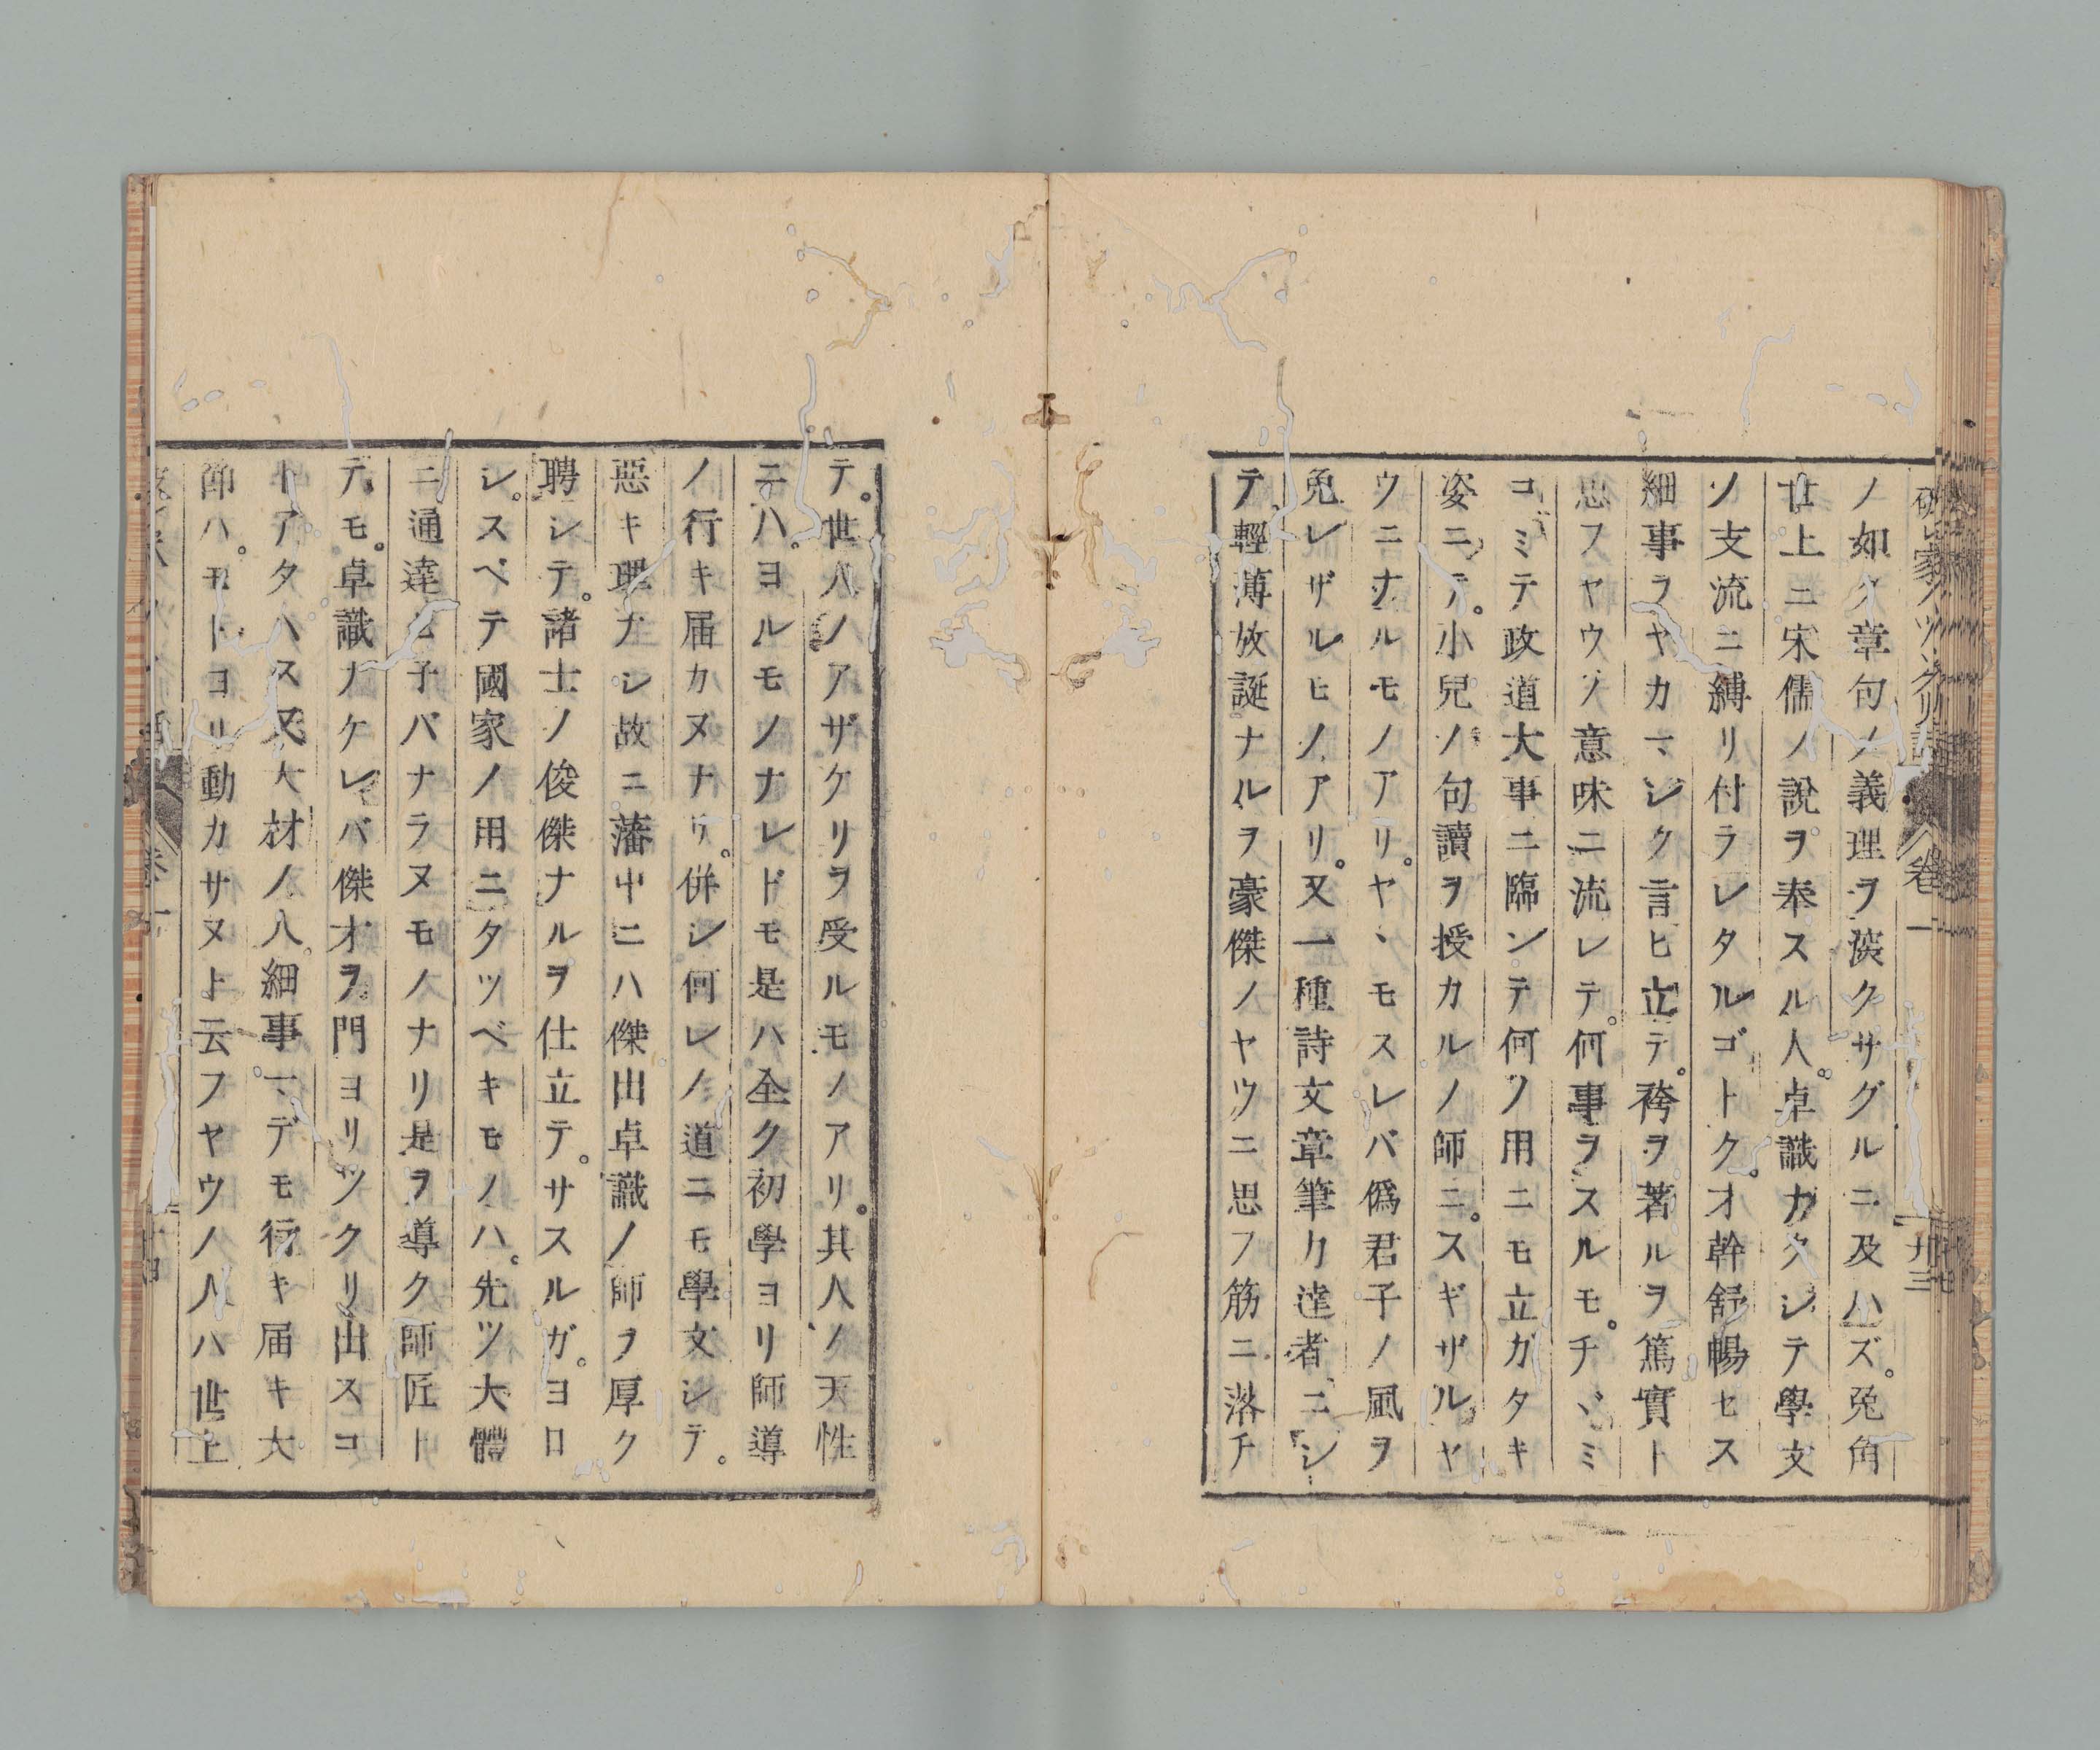 破レ家ノツヽクリ話 卷一 廿三
ノ如ク章句ノ義理ヲ淡クサグルニ及ハズ。兎角
世上ニ宋儒ノ說ヲ奉スル人。卓識ナクシテ學文
ノ支流ニ縛リ付ラレタルゴトク。才幹舒暢セス
細事ヲヤカマシク言ヒ立テ。袴ヲ著ルヲ篤實ト
思フヤウノ意味ニ流レテ。何事ヲスルモ。チヾミ
コミテ政道大事ニ臨ンテ何ノ用ニモ立ガタキ
姿ニテ。小兒ノ句讀ヲ授カルノ師ニ。スギザルヤ
ウニナルモノアリ。ヤヽモスレバ僞君子ノ風ヲ
免レザルヒノアリ。又一種詩文章筆力達者ニシ
テ輕薄放誕ナルヲ豪傑ノヤウニ思フ筋ニ落チ
テ。世人ノアザケリヲ受ルモノアリ。其人ノ天性
ニハ。ヨルモノナレドモ是ハ全ク初學ヨリ師導
ノ行キ届カヌナリ。併シ何レノ道ニモ學文シテ。
惡キ理ナシ故ニ藩中ニハ傑出卓識ノ師ヲ厚ク
聘シテ。諸士ノ俊傑ナルヲ仕立テ。サスルガ。ヨロ
シ。スベテ國家ノ用ニタツベキモノハ。先ツ大體
ニ通達セ子バナラヌモノナリ是ヲ導ク師匠ト
テモ。卓識ナケレバ傑才ヲ。門ヨリツクリ出スコ
トアタハス又大材ノ人。細事マデモ行キ届キ大
節ハ。モトヨリ動カサヌト云フヤウノ人ハ世上